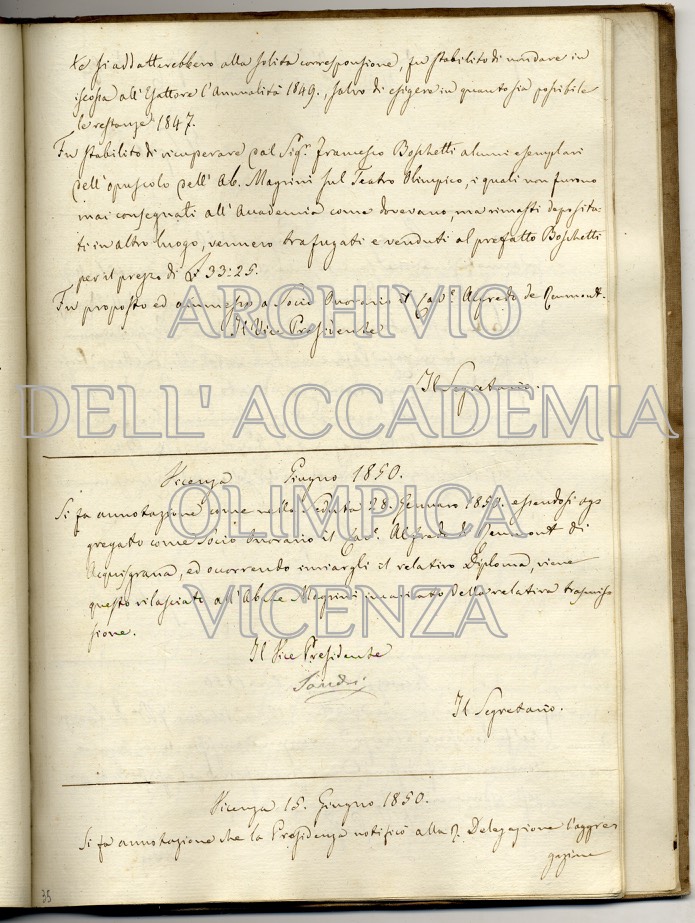 te si addatterebbero alla solita corresponsione, fu stabilito di mandare in
iscossa all'Esattore l'Annualità 1849., salvo di esigere in quanto sia possibile
le restanze 1847.
Fu stabilito di ricuperare dal Sigr. Francesco Boschetti alcuni esemplari
dell'opuscolo dell'Ab. Magrini sul Teatro Olimpico, i quali non furono
mai consegnati all'Accademia come dovevano, ma rimasti deposita-
ti in altro luogo, vennero trafugati e venduti al prefatto Boschetti
per il prezzo di £ 33:25.
Fu proposto ed ammesso a Socio Onorario il Cave. Alfredo de Reumont.
Il Vice Presidente
ARCHIVIO
Il Segretario.
DELL' ACCADEMIA
Vicenza Giugno 1850.
OLIMPICA
Si fa annotazione come nella Seduta 28. Gennaro 1850. essendosi ag-
gregato come Socio Onorario il Cav. Alfredo de Reumont di
Acquisgrana, ed occorrendo inviargli il relativo Diploma, viene
VICENZA
questo rilasciato all'Abate Magrini incaricato della relativa trasmis-
sione.
Il Vice Presidente
Il Segretario.
Vicenza 15. Giugno 1850.
Si fa annotazione che la Presidenza notificò alla R. Delegazione l'aggre-
gazione
35